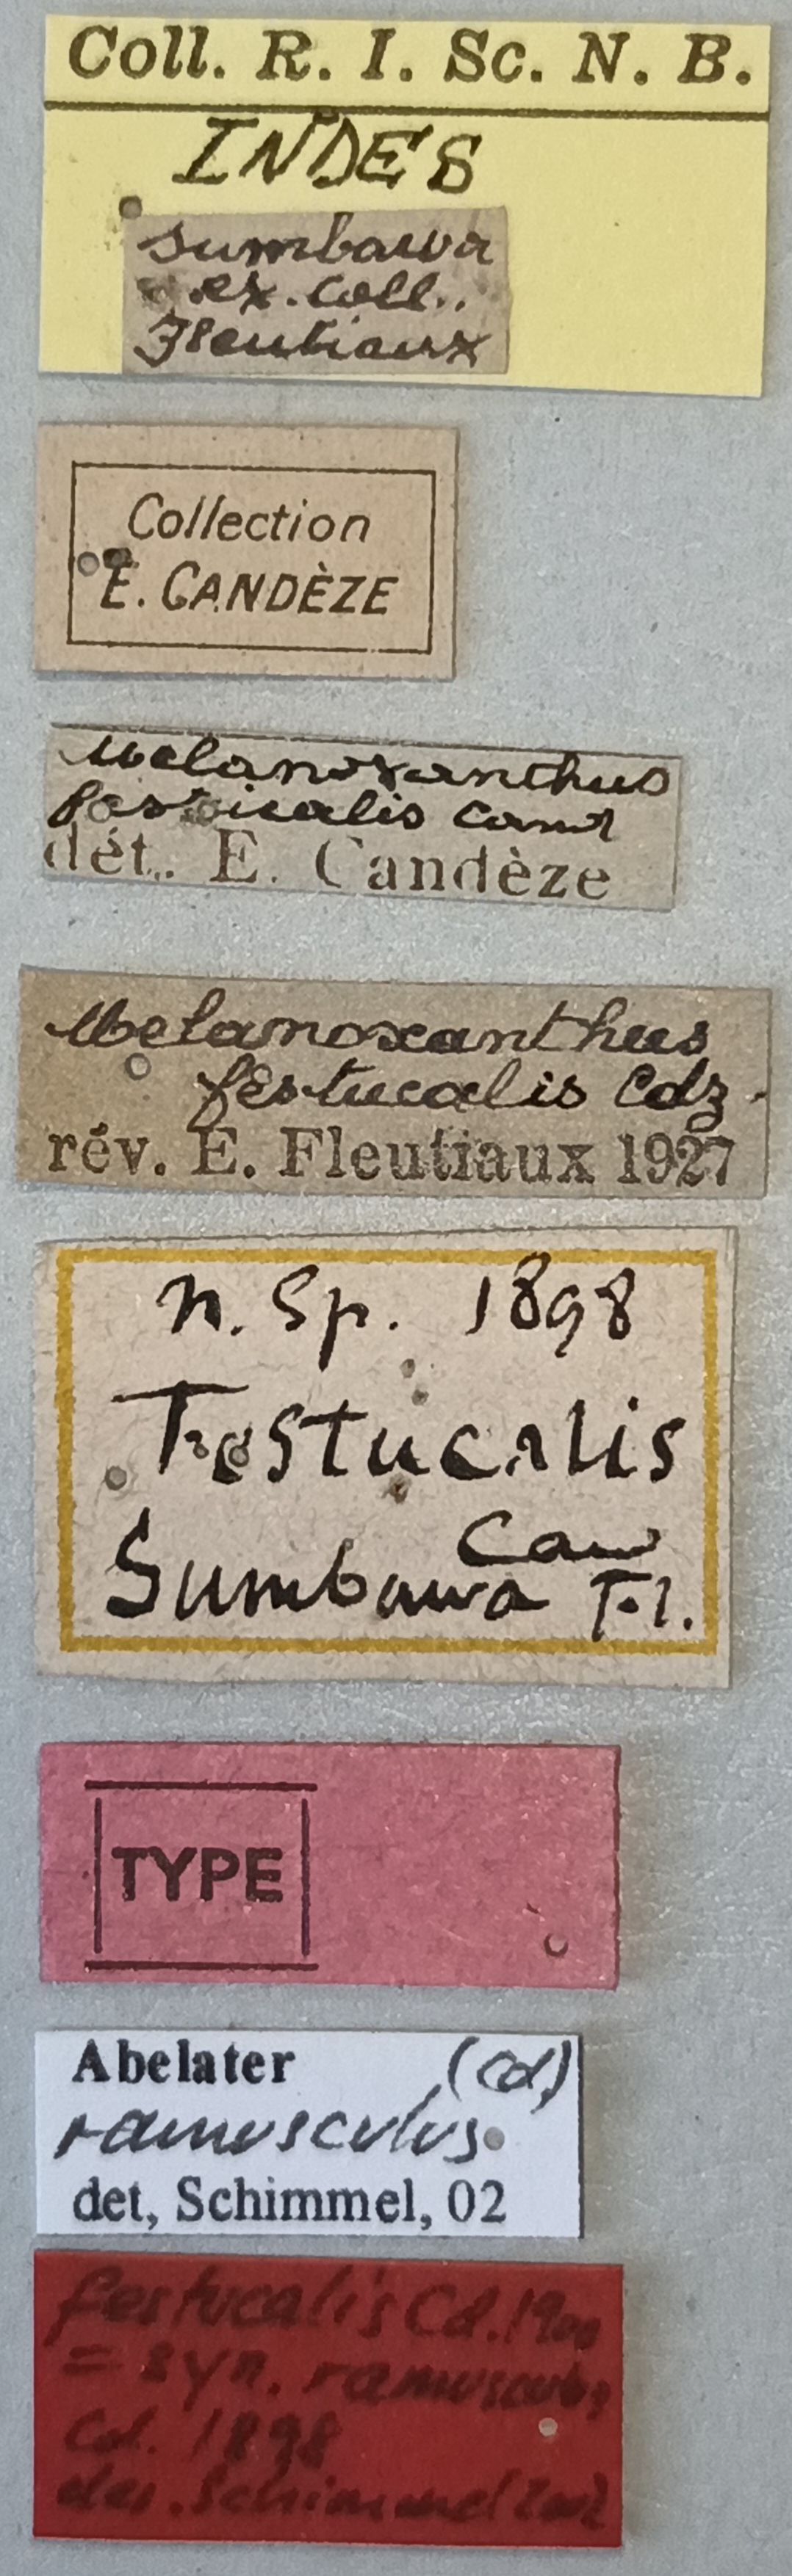 Coll. R. I. Sc. N. B.
INDES
Sumbawa
ex. Coll..
Fleutiaux
Collection
E. CANDÈZE
Melanoxanthus
festucalis Cand
dét.. E. Candèze
Melanoxanthus
festucalis Cdz.
rév. E. Fleutiaux 1927
n. Sp. 1898
Festucalis
Cand
Sumbawa Fl.
TYPE
Abelater (Cd)
ramusculus
det, Schimmel, 02
festucalis Cd. 1900
= syn. ramusculus
Cd. 1898
des. Schimmel 2002